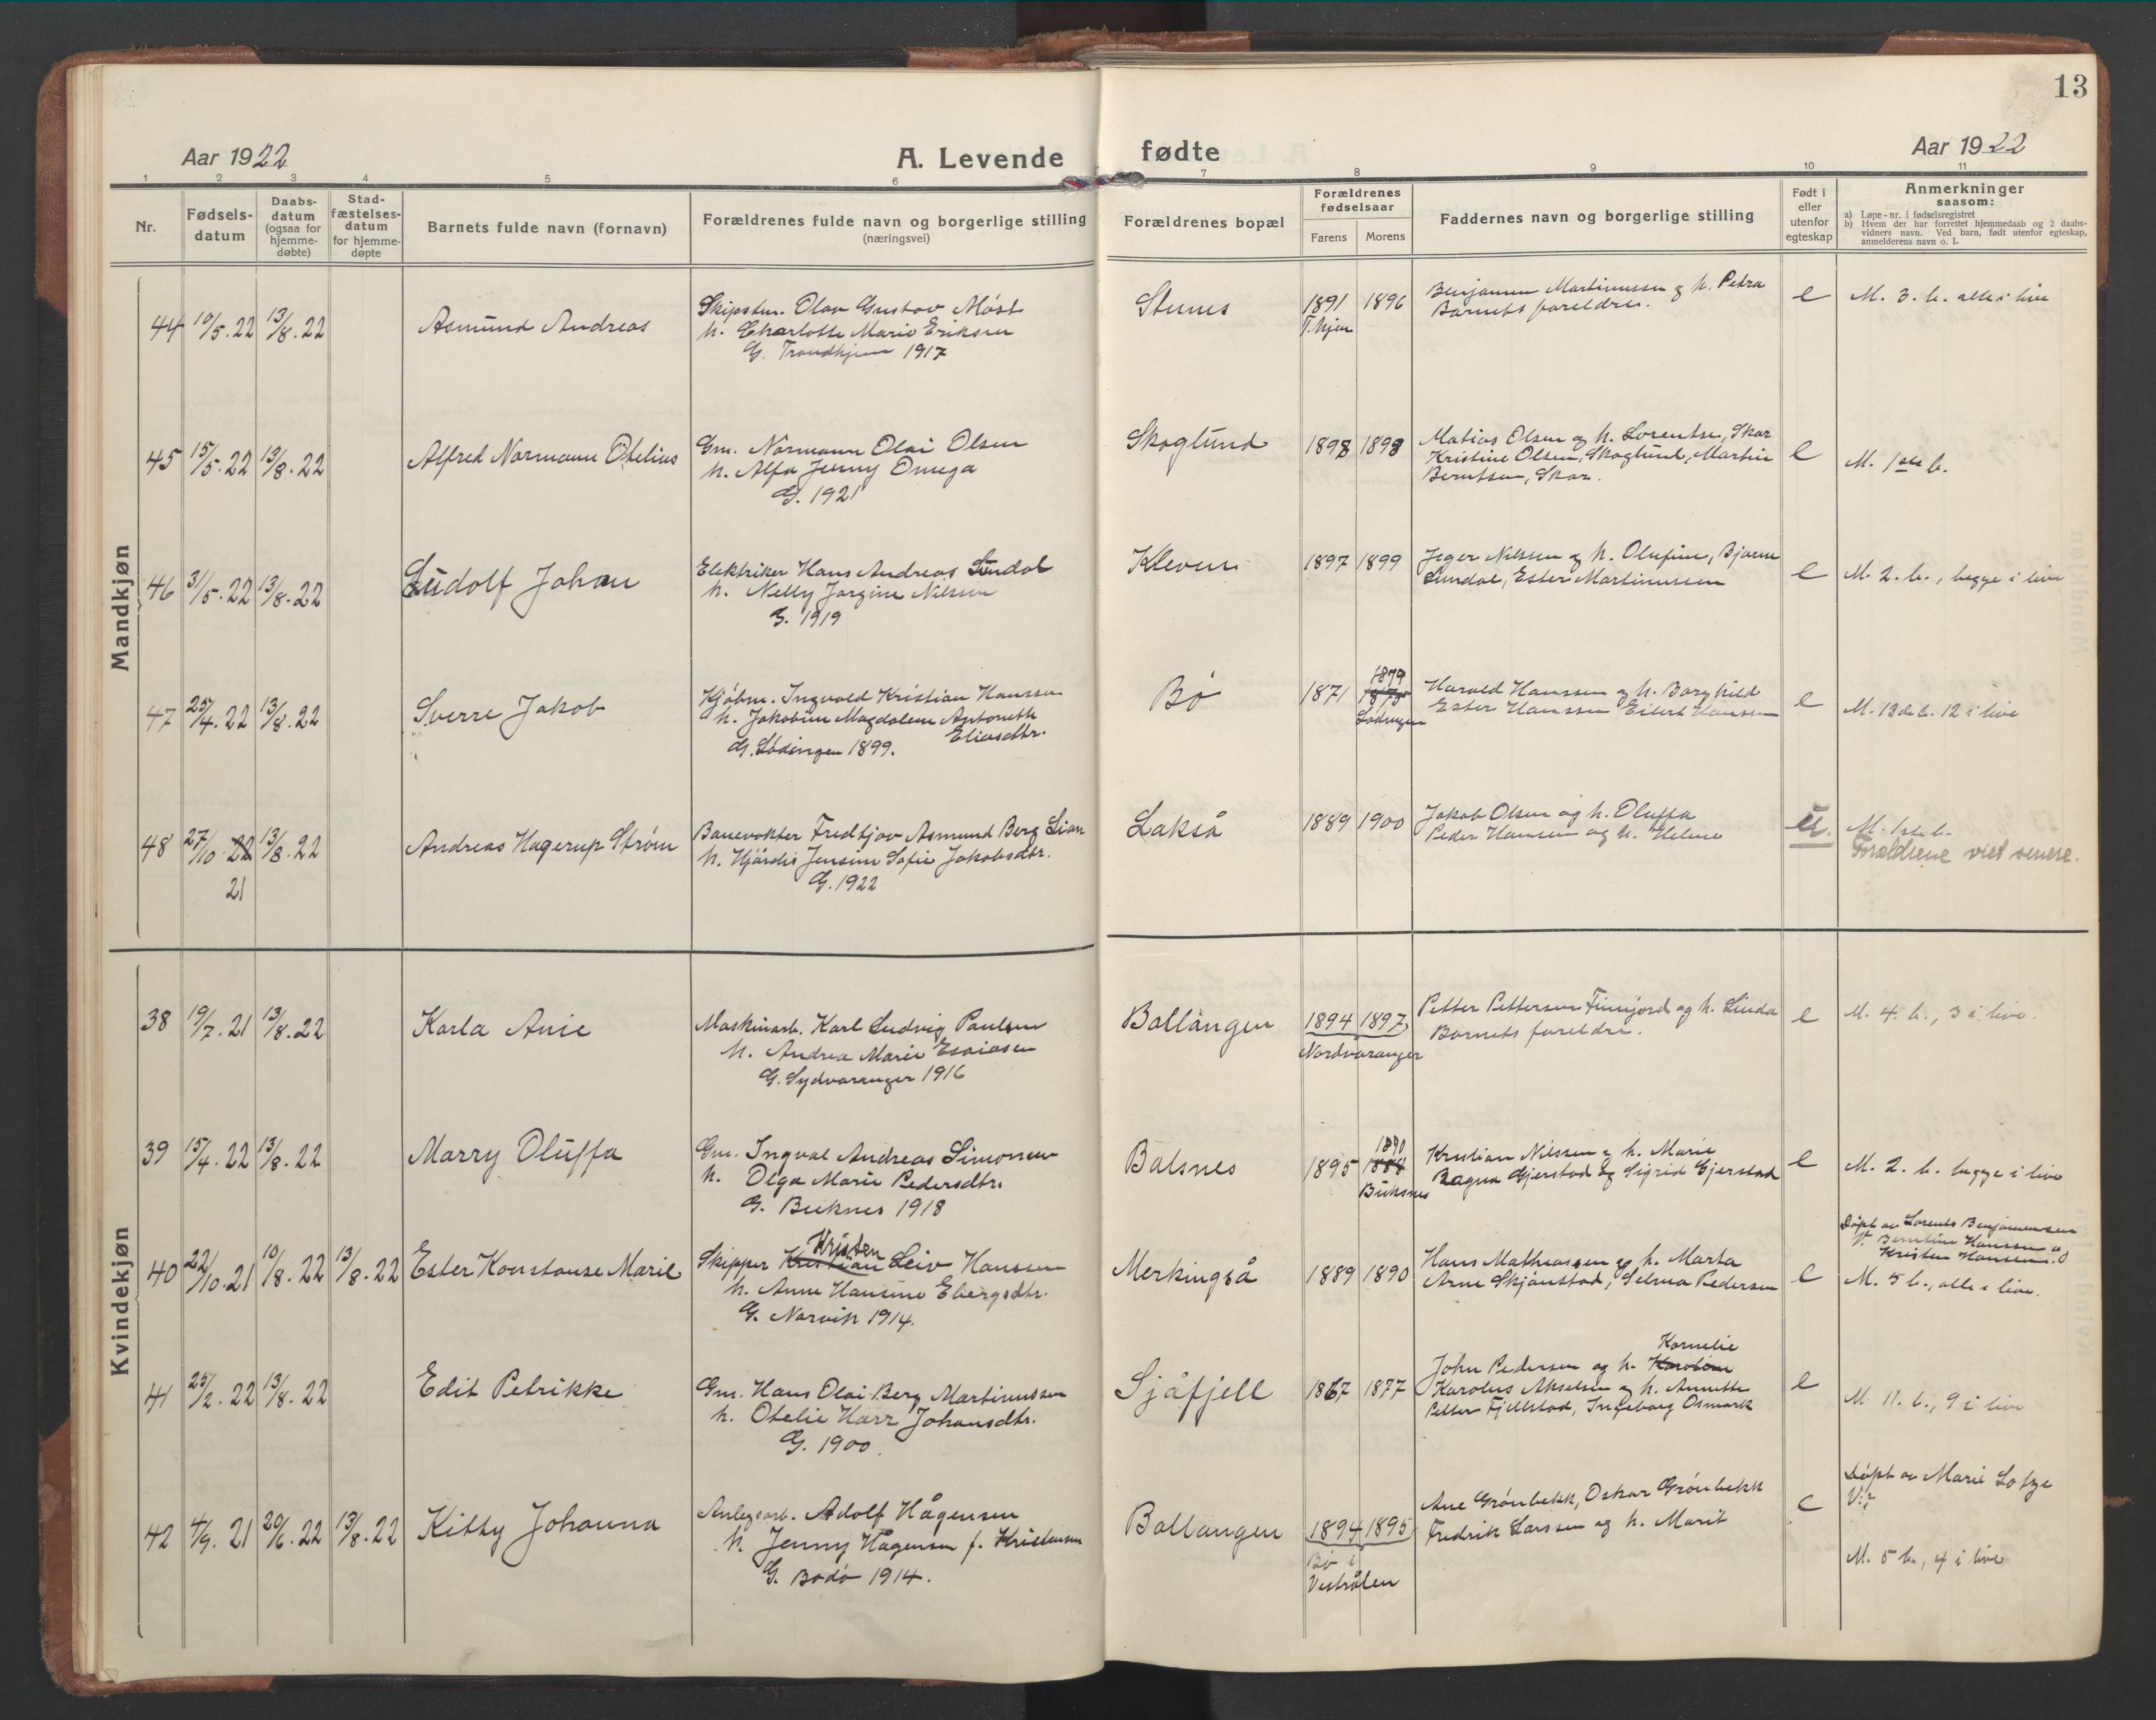 13
Aar 1922
A. Levende fødte
Aar 1922
1 2 3 4 5 6 7 8 9 10 11
Nr.
Fødsels-
datum
Daabs-
datum
(ogsaa for
hjemme-
døbte)
Stad-
fæstelses-
datum
for hjemme-
døpte
Barnets fulde navn (fornavn)
Forældrenes fulde navn og borgerlige stilling
(næringsvei)
Forældrenes bopæl
Forældrenes
fødselsaar
Farens Morens
Faddernes navn og borgerlige stilling
Født i
eller
utenfor
egteskap
Anmerkninger
saasom:
a) Løpe-nr. i fødselsregistret
b) Hvem der har forrettet hjemmedaab og 2 daabs-
vidners navn. Ved barn, født utenfor egteskap,
anmelderens navn o. l.
Mandkjøn
44 10/5.22 13/8.22
Asmund Andreas
Skipstm. Olav Gustav Möst
h. Charlotte Marie Eriksen
G. Trondhjem 1917
Stenes
1891 1896
T.hjem
Benjamin Martinussen og h. Petra
Barnets foreldre.
e
M. 3. b. alle i live
45 15/5.22 13/8.22
Alfred Normann Otelius
Gm. Normann Olai Olsen
h. Alfa Jenny Omega
G. 1921
Skoglund
1898 1898
Matias Olsen og h. Lorentse, Skar
Kristine Olsen, Skoglund, Martin
Berntsen, Skar.
e
M. 1ste b.
46 31/5.22 13/8.22
Ludolf Johan
Elektriker Hans Andreas Sundal
h. Nelly Jorgine Nilssen
G. 1919
Kleven
1897 1899
Jeger Nilssen og h. Olufine, Bjarne
Sundal, Ester Martinussen
e
M. 2. b., begge i live
47 25/4.22 13/8.22
Sverre Jakob
Kjöbm. Ingvald Kristian Hanssen
h. Jakobine Magdalene Antonette
Eliasdtr.
G. Lödingen 1899.
Bö
1871 1879
1875
Lödingen
Harald Hanssen og h. Borghild
Ester Hanssen Eilert Hanssen
e
M. 13de b. 12 i live
48 27/10.22 13/8.22
21
Andreas Hagerup Strøm
Banevokter Fredtjov Asmund Berg Lian
h. Hjördis Jensine Sofie Jakobsdtr.
G. 1922
Lakså
1889 1900
Jakob Olsen og h. Oluffa
Peder Hansen og h. Helene
u.
M. 1ste b.
Forældrene viet senere.
Kvindekjøn
38 19/7.21 13/8.22
Karla Anie
Maskinarb. Karl Ludvig Paulsen
h. Andrea Marie Esaiasen
G. Sydvaranger 1916
Ballangen
1894 1897
Nordvaranger
Petter Pettersen Finnjord og h. Linda
Barnets foreldre.
e
M. 4. b., 3 i live.
39 15/4.22 13/8.22
Marry Oluffa
Gm. Ingval Andreas Simonsen
h. Olga Marie Pedersdtr.
G. Buknes 1918
Balsnes
1895 1890
1888
Buksnes
Kristian Nilssen og h. Marie
Ragna Gjerstad og Sigrid Gjerstad
e
M. 2. b. begge i live
40 22/10.21 10/8.22 13/8.22
Ester Konstanse Marie
Kristen
Skipper Kristian Leiv Hanssen
h. Anne Hansine Ebergsdtr.
G. Narvik 1914.
Merkingså
1889 1890
Hans Mathiassen og h. Marta
Arne Skjånstad, Selma Pedersen
e
Döpt av Lorents Benjaminsen
V. Berntine Hanssen og
Kristen Hanssen.
M. 5 b., alle i live.
41 25/2.22 13/8.22
Edit Petrikke
Gm. Hans Olai Berg Martinussen
h. Otelie Harr Johansdtr.
G. 1900.
Sjåfjell
1867 1877
Kornelie
John Pedersen og h.
Karolus Akselsen og h. Annette
Petter Fjellstad, Ingeborg Osmark
e
M. 11. b., 9 i live
42 4/9.21 20/6.22 13/8.22
Kitty Johanna
Anlegsarb. Adolf Hågensen
h. Jenny Hågensen f. Kristensen
G. Bodö 1914.
Ballangen
1894 1895
Bö i
Vestrålen
Ane Grönbekk, Oskar Grönbekk
Fredrik Larssen og h. Marit
e
Döpt av Marie Lotze
V:
M. 5 b., 4 i live